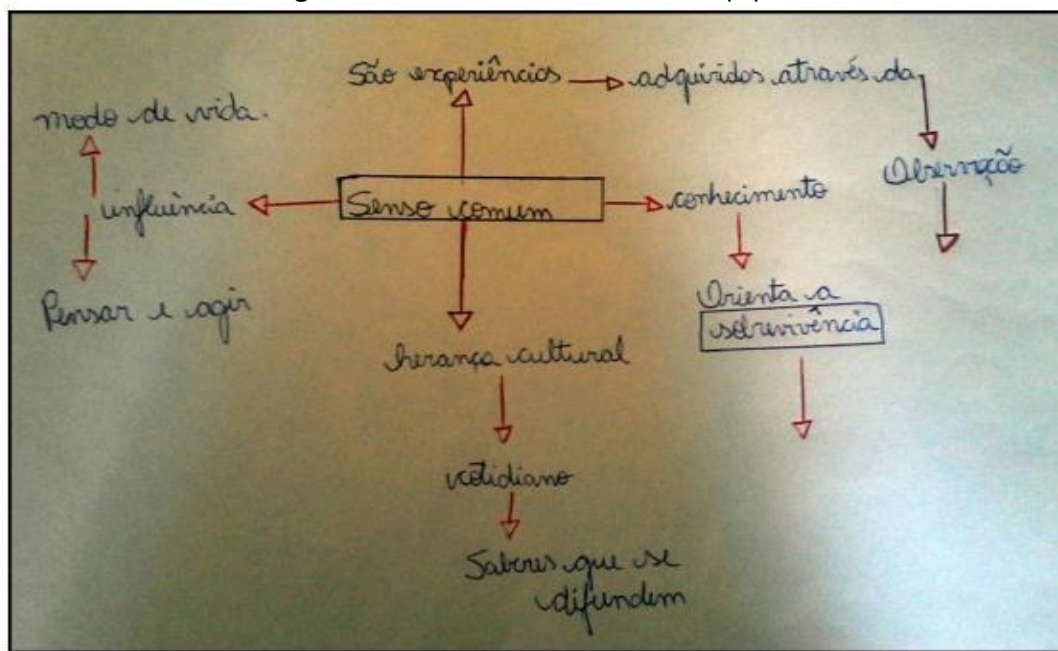 São experiências adquiridos através da
modo de vida.
Observação
influência
Senso comum
conhecimento
Pensar e agir
Orienta a
sobrevivência
herança cultural
cotidiano
Saberes que se
difundem